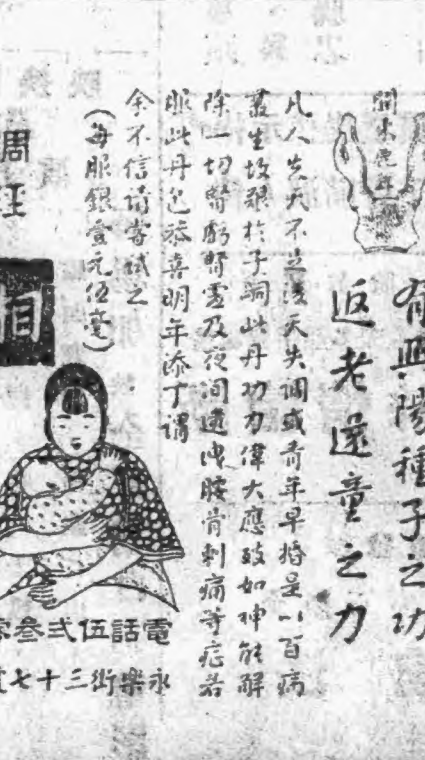 有興陽種子之功
返老還童之力
關東鹿茸
凡人先天不足後天失調或青年早婚是以百病
叢生故艱於子嗣此丹功力偉大應效如神能解
除一切腎虧腎虛及夜间遺洩腰骨刺痛等症若
服此丹包恭喜明年添丁謂
余不信请嘗試之
(每服銀壹元伍毫)
周
電話伍弍叁
永樂街三十七